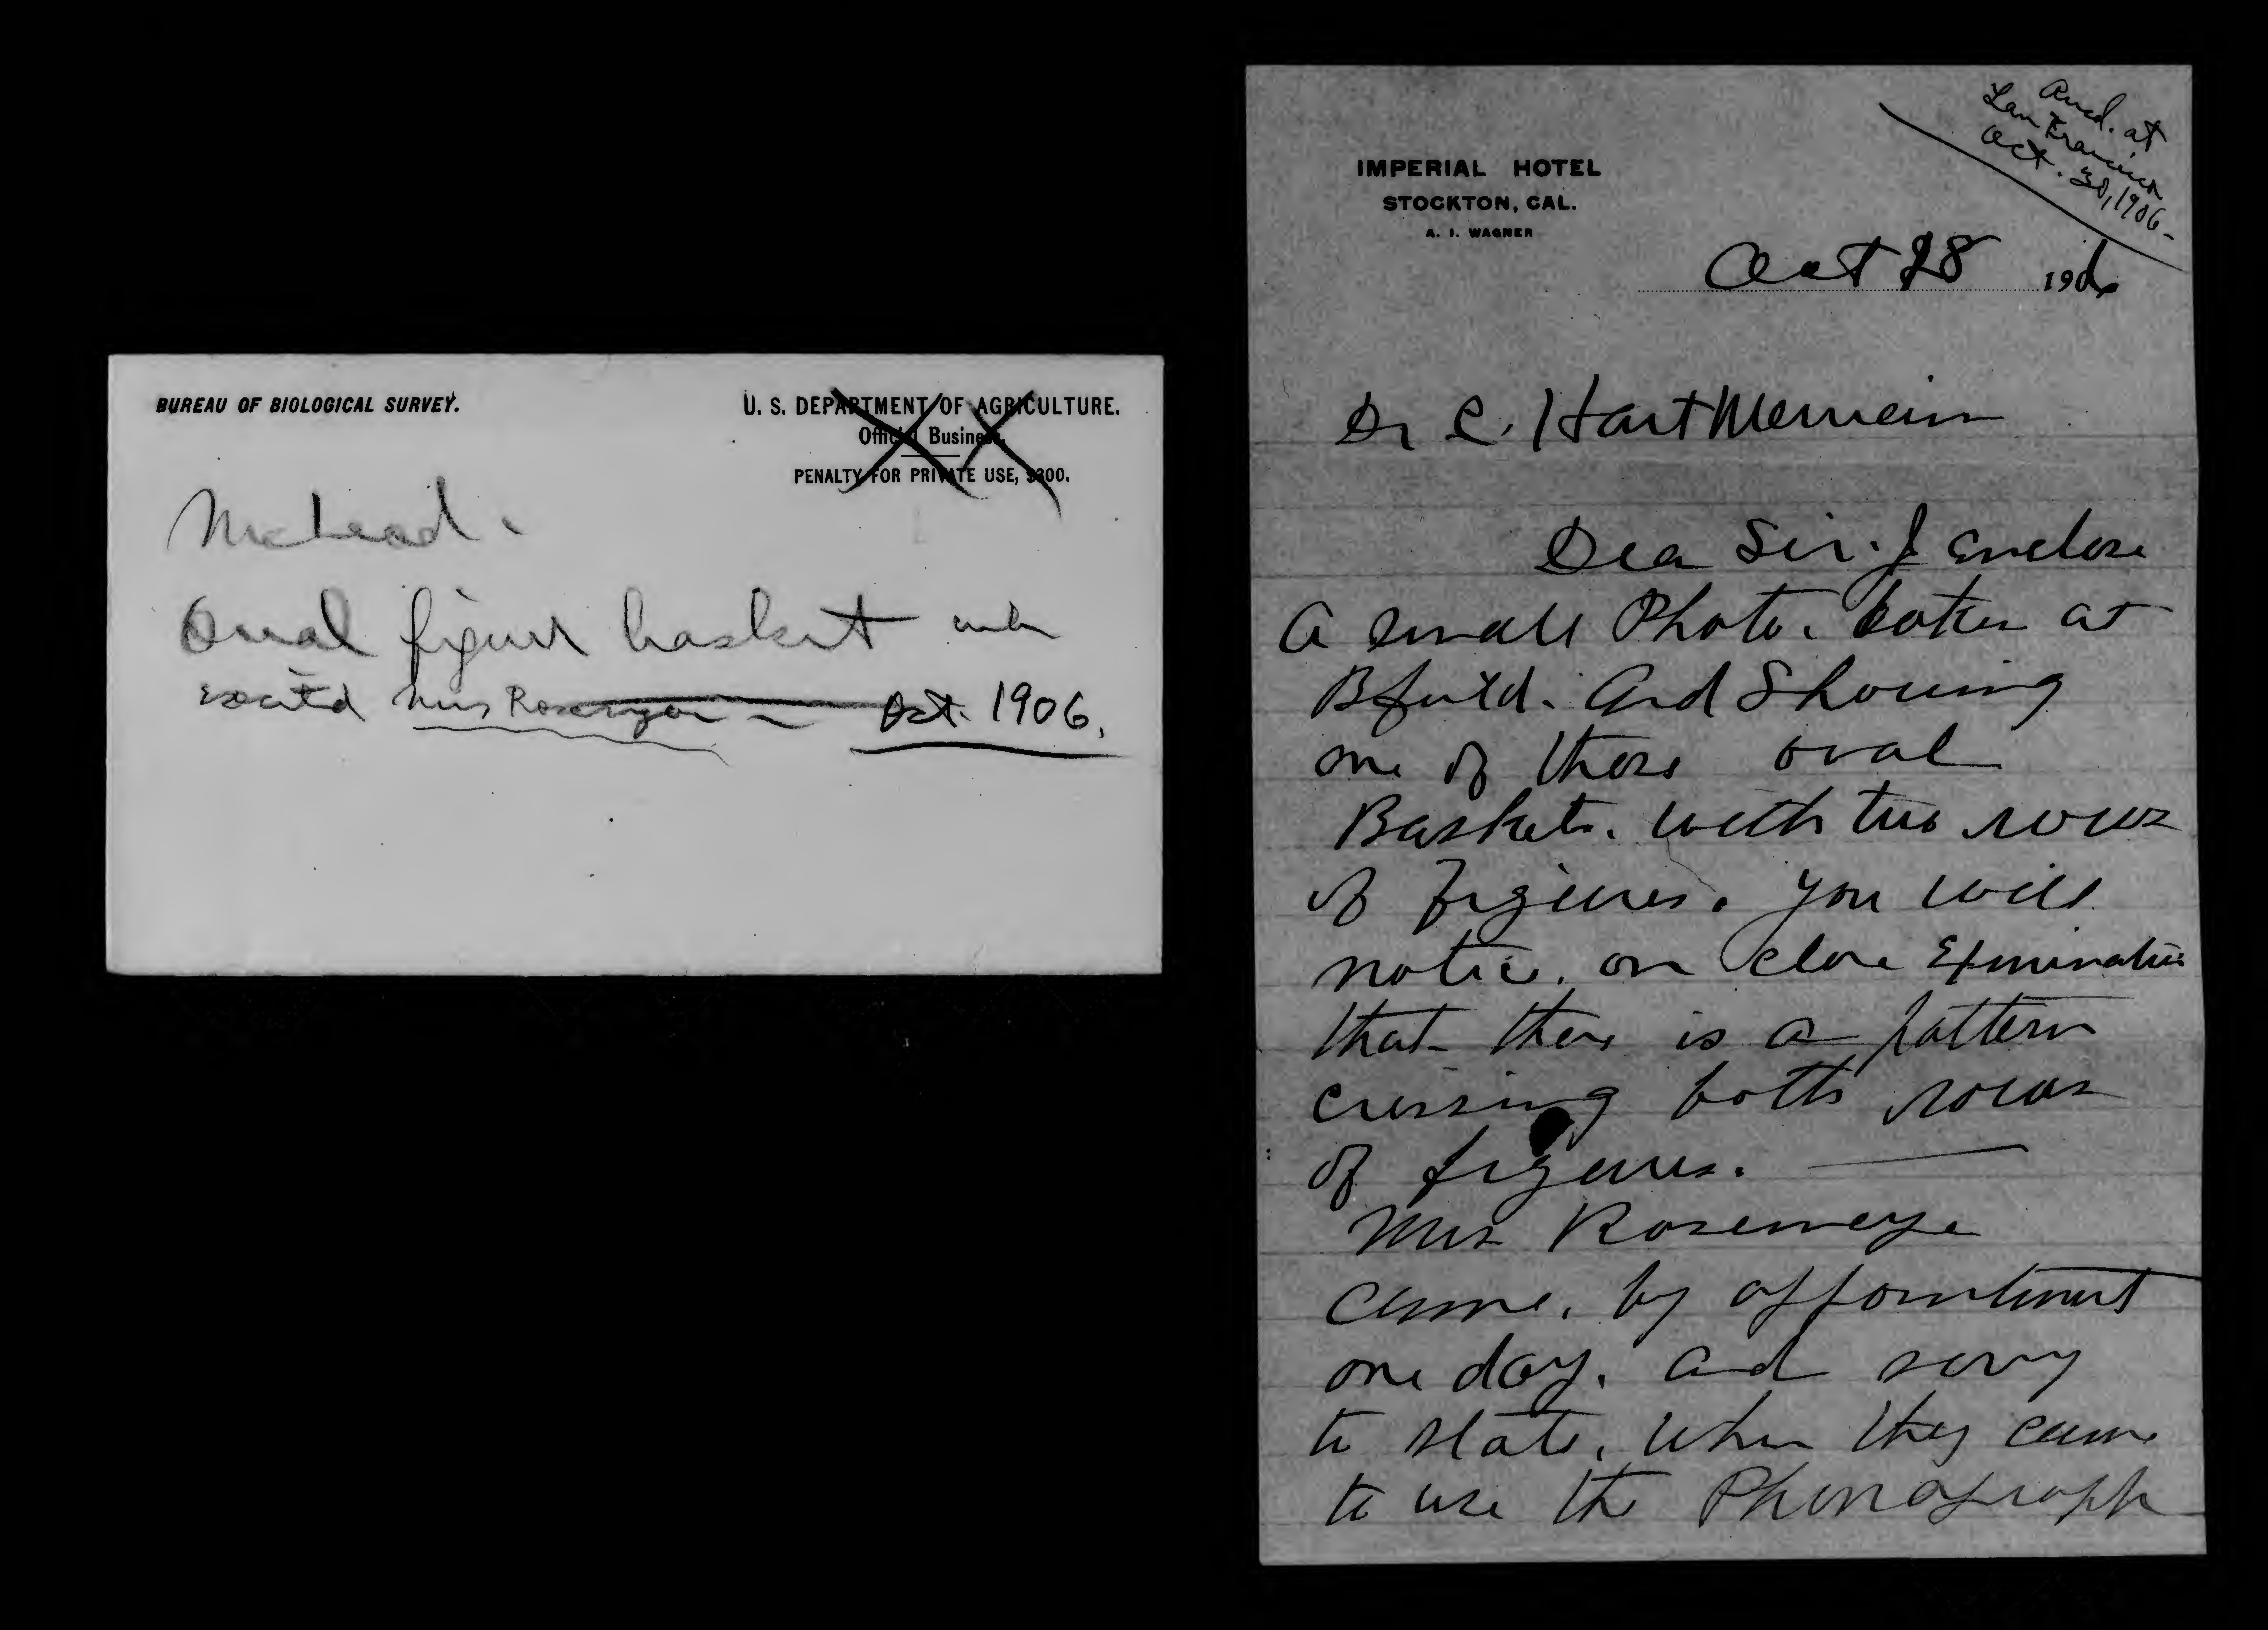 BUREAU OF BIOLOGICAL SURVEY.
U. S. DEPARTMENT OF AGRICULTURE.
Official Business.
PENALTY FOR PRIVATE USE, $300.
McLeod.
Oval figure basket
Mrs Rosemyer Oct. 1906.
Ansd. at
San Francisco
Oct. 30, 1906
IMPERIAL HOTEL
STOCKTON, CAL.
A. I. WAGNER
Oct 28 1906
Dr C. Hart Merriam
Dea Sir. I Enclose
a small Photo. taken at
Bfield. And Showing
one of those oval
Baskets. with two rows
of figures. you will
notice. on close Exmination
that there is a pattern
crossing both rows
of figures.
Mrs Rosemeye
came. by appointment
one day. and sorry
to state. when they came
to use the Phonograph